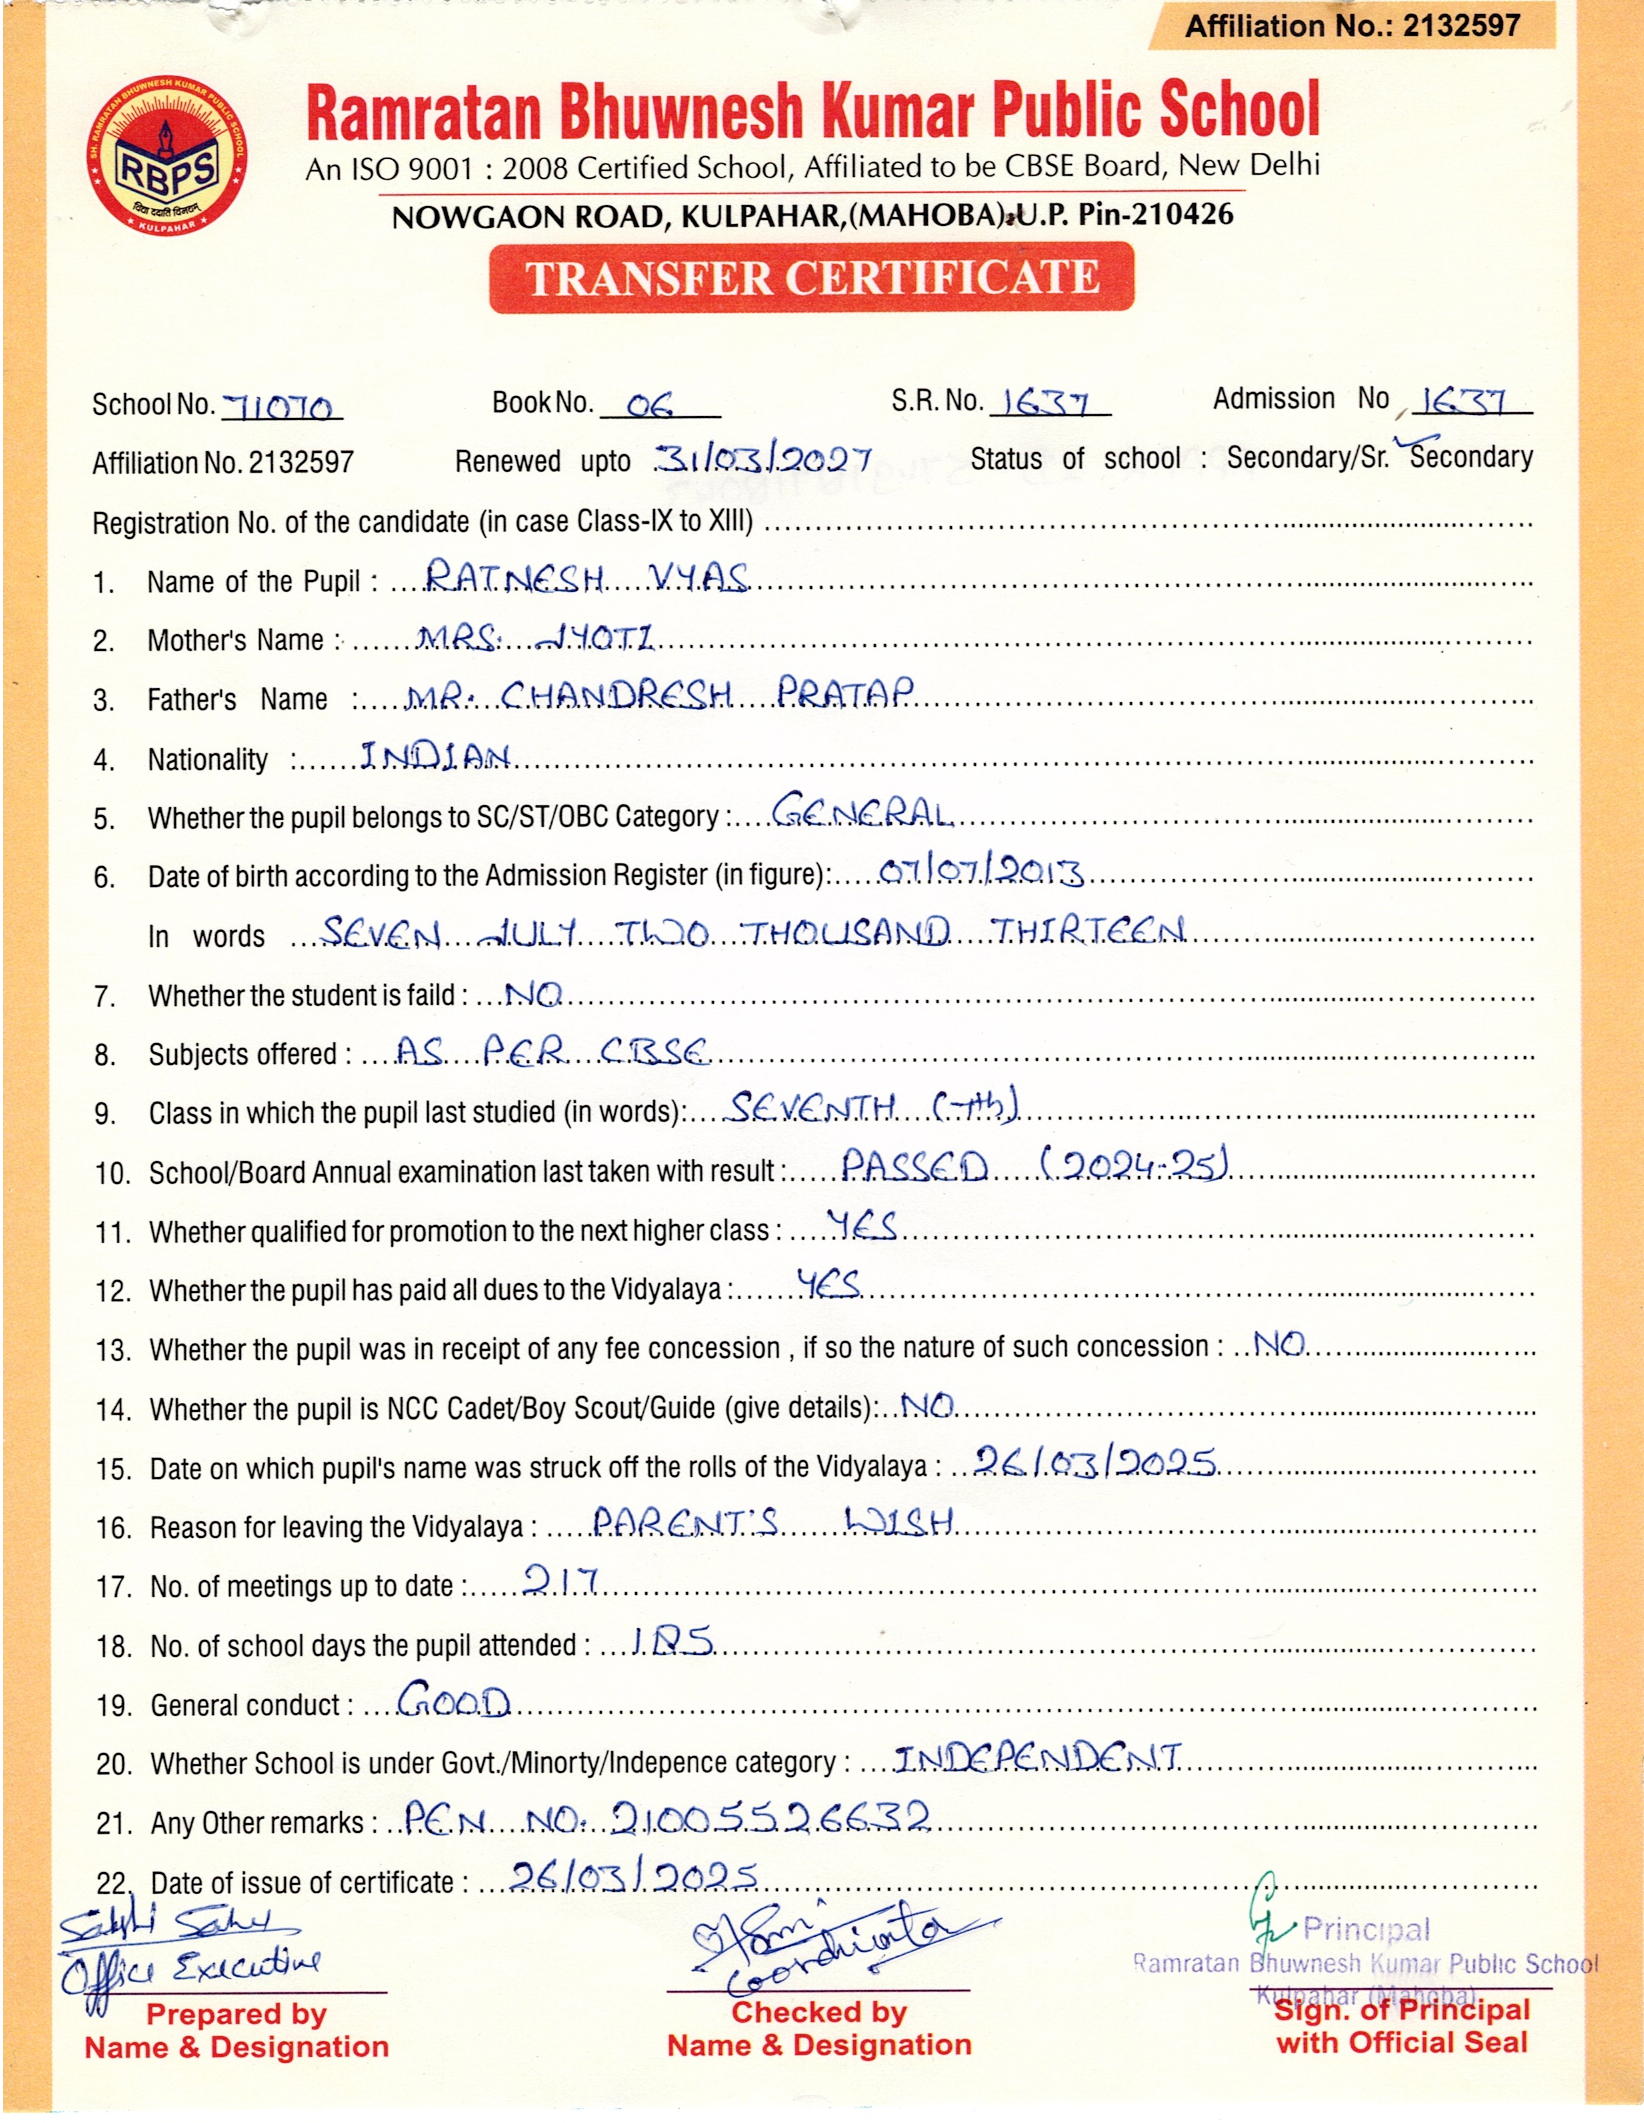 Affiliation No.: 2132597
SH. RAMRATAN BHUWNESH KUMAR PUBLIC SCHOOL
RBPS
विद्या ददाति विनयम्
KULPAHAR
Ramratan Bhuwnesh Kumar Public School
An ISO 9001 : 2008 Certified School, Affiliated to be CBSE Board, New Delhi
NOWGAON ROAD, KULPAHAR,(MAHOBA) U.P. Pin-210426
TRANSFER CERTIFICATE
School No. 71070 Book No. 06 S.R. No. 1637 Admission No 1637
Affiliation No. 2132597 Renewed upto 31/03/2027 Status of school : Secondary/Sr. Secondary
Registration No. of the candidate (in case Class-IX to XIII)
1. Name of the Pupil : RATNESH VYAS
2. Mother's Name : MRS. JYOTI
3. Father's Name : MR. CHANDRESH PRATAP
4. Nationality : INDIAN
5. Whether the pupil belongs to SC/ST/OBC Category : GENERAL
6. Date of birth according to the Admission Register (in figure): 07/07/2013
In words SEVEN JULY TWO THOUSAND THIRTEEN
7. Whether the student is faild : NO
8. Subjects offered : AS PER CBSE
9. Class in which the pupil last studied (in words): SEVENTH (7th)
10. School/Board Annual examination last taken with result : PASSED (2024-25)
11. Whether qualified for promotion to the next higher class : YES
12. Whether the pupil has paid all dues to the Vidyalaya : YES
13. Whether the pupil was in receipt of any fee concession , if so the nature of such concession : NO
14. Whether the pupil is NCC Cadet/Boy Scout/Guide (give details): NO
15. Date on which pupil's name was struck off the rolls of the Vidyalaya : 26/03/2025
16. Reason for leaving the Vidyalaya : PARENT'S WISH
17. No. of meetings up to date : 217
18. No. of school days the pupil attended :
19. General conduct : GOOD
20. Whether School is under Govt./Minorty/Indepence category : INDEPENDENT
21. Any Other remarks : PEN NO. 21005526632
22. Date of issue of certificate : 26/03/2025
Office Executive
Coordinator
Principal
Ramratan Bhuwnesh Kumar Public School
Kulpahar (Mahoba)
Prepared by Checked by Sign. of Principal
Name & Designation Name & Designation with Official Seal